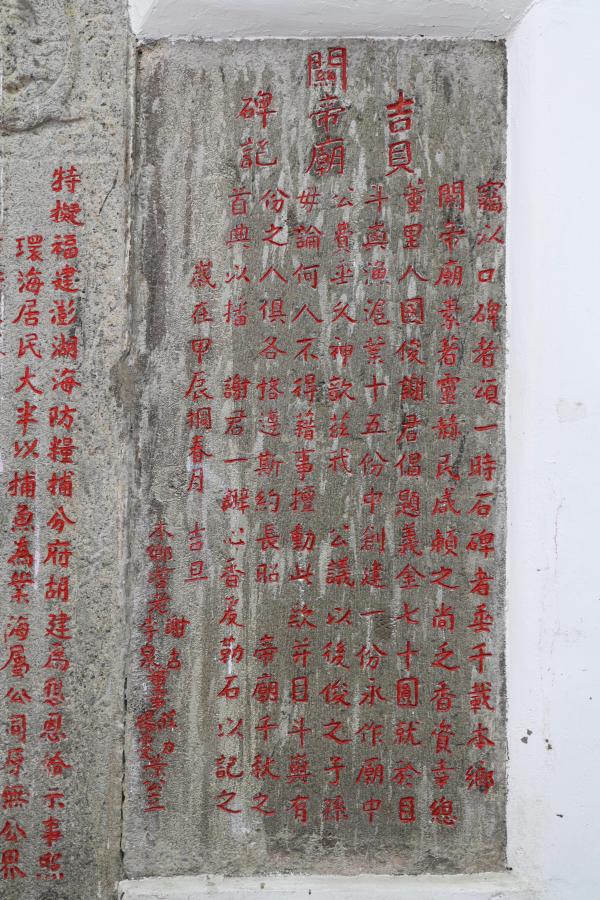 吉貝
關帝廟
碑記
竊以口碑者頌一時石碑者垂千載本鄉
關帝廟素著靈赫民咸賴之尚乏香資幸總
董里人國俊謝君倡題義金七十圓就於目
斗真漁滬業十五份中創建一份永作廟中
公費垂久神歆茲哉 公議以後俊之子孫
毋論何人不得藉事擅動此款并目斗與有
份之人俱各恪遵斯約長昭 帝廟千秋之
首典以播 謝君一辦心香爰勒石以記之
歲在甲辰桐春月 吉旦
本鄉耆老 謝
特擬福建澎湖海防糧捕分府胡建為懇恩給示事照
環海居民大半以捕魚為業海屬公司原無公界